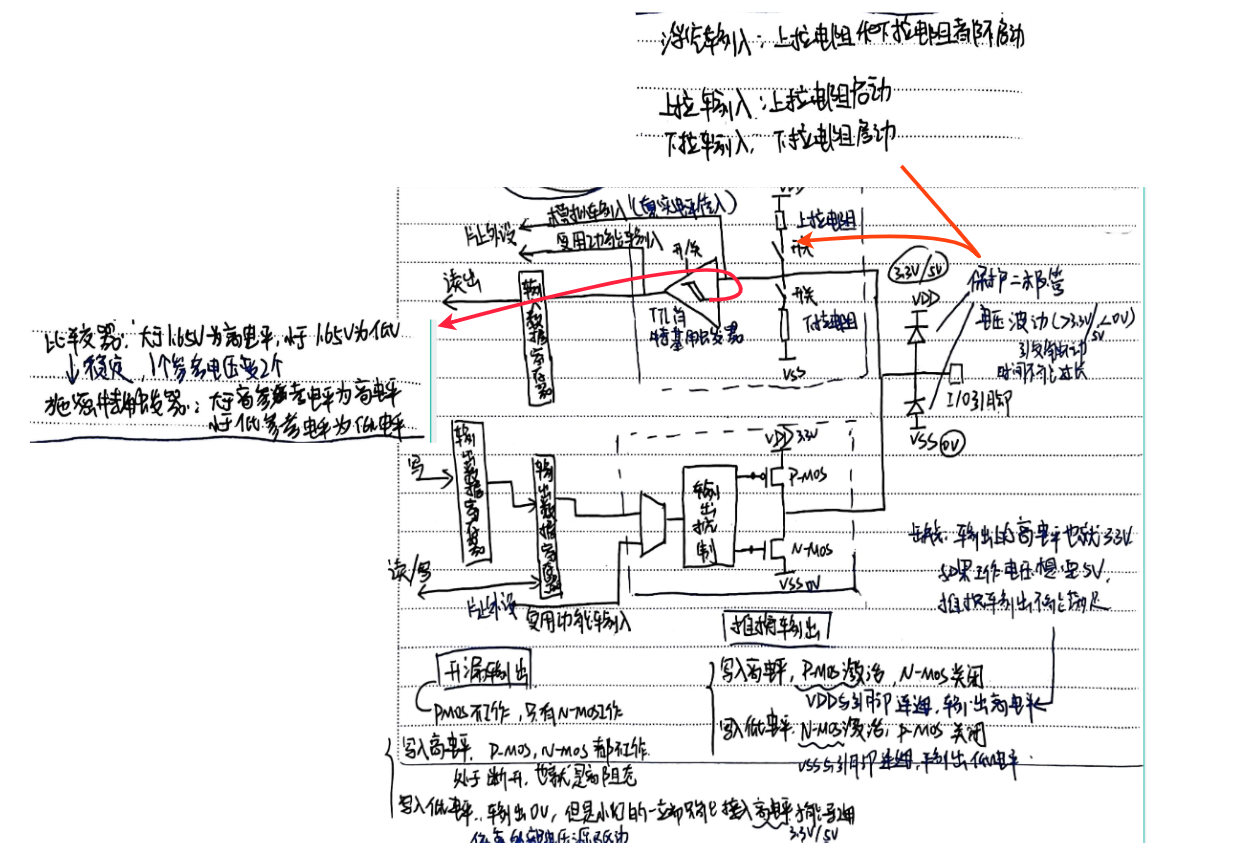 浮空输入：上拉电阻和下拉电阻都不启动
上拉输入：上拉电阻启动
下拉输入，下拉电阻启动
VDD
模拟输入(真实电平值入)
上拉电阻
片上外设
复用功能输入
开/关
开关
读出
输入数据寄存器
TTL肖特基触发器
开关
下拉电阻
VSS
3.3V/5V
VDD
保护二极管
电压波动(>3.3V/5V,<0V)
时间不能过长
I/O引脚
VSS 0V
比较器：大于1.65V为高电平，小于1.65V为低
↓稳定，1个参考电压变2个
施密特触发器：大于高参考电平为高电平
小于低参考电平为低电平
写
输出数据寄存器
输出数据寄存器
读/写
片上外设
复用功能输入
输出控制
VDD 3.3V
P-MOS
N-MOS
VSS 0V
缺点：输出的高电平也就3.3V
如果工作电压想要5V，
推挽输出不能满足
推挽输出
写入高电平，P-MOS激活，N-MOS关闭
VDD与引脚连通，输出高电平
写入低电平，N-MOS激活，P-MOS关闭
VSS与引脚连通，输出低电平
开漏输出
PMOS不工作，只有N-MOS工作
写入高电平，P-MOS，N-MOS都不工作
处于断开，也就是高阻态
写入低电平，输出0V，但是小灯的一立即只能接入高电平才能导通
3.3V/5V